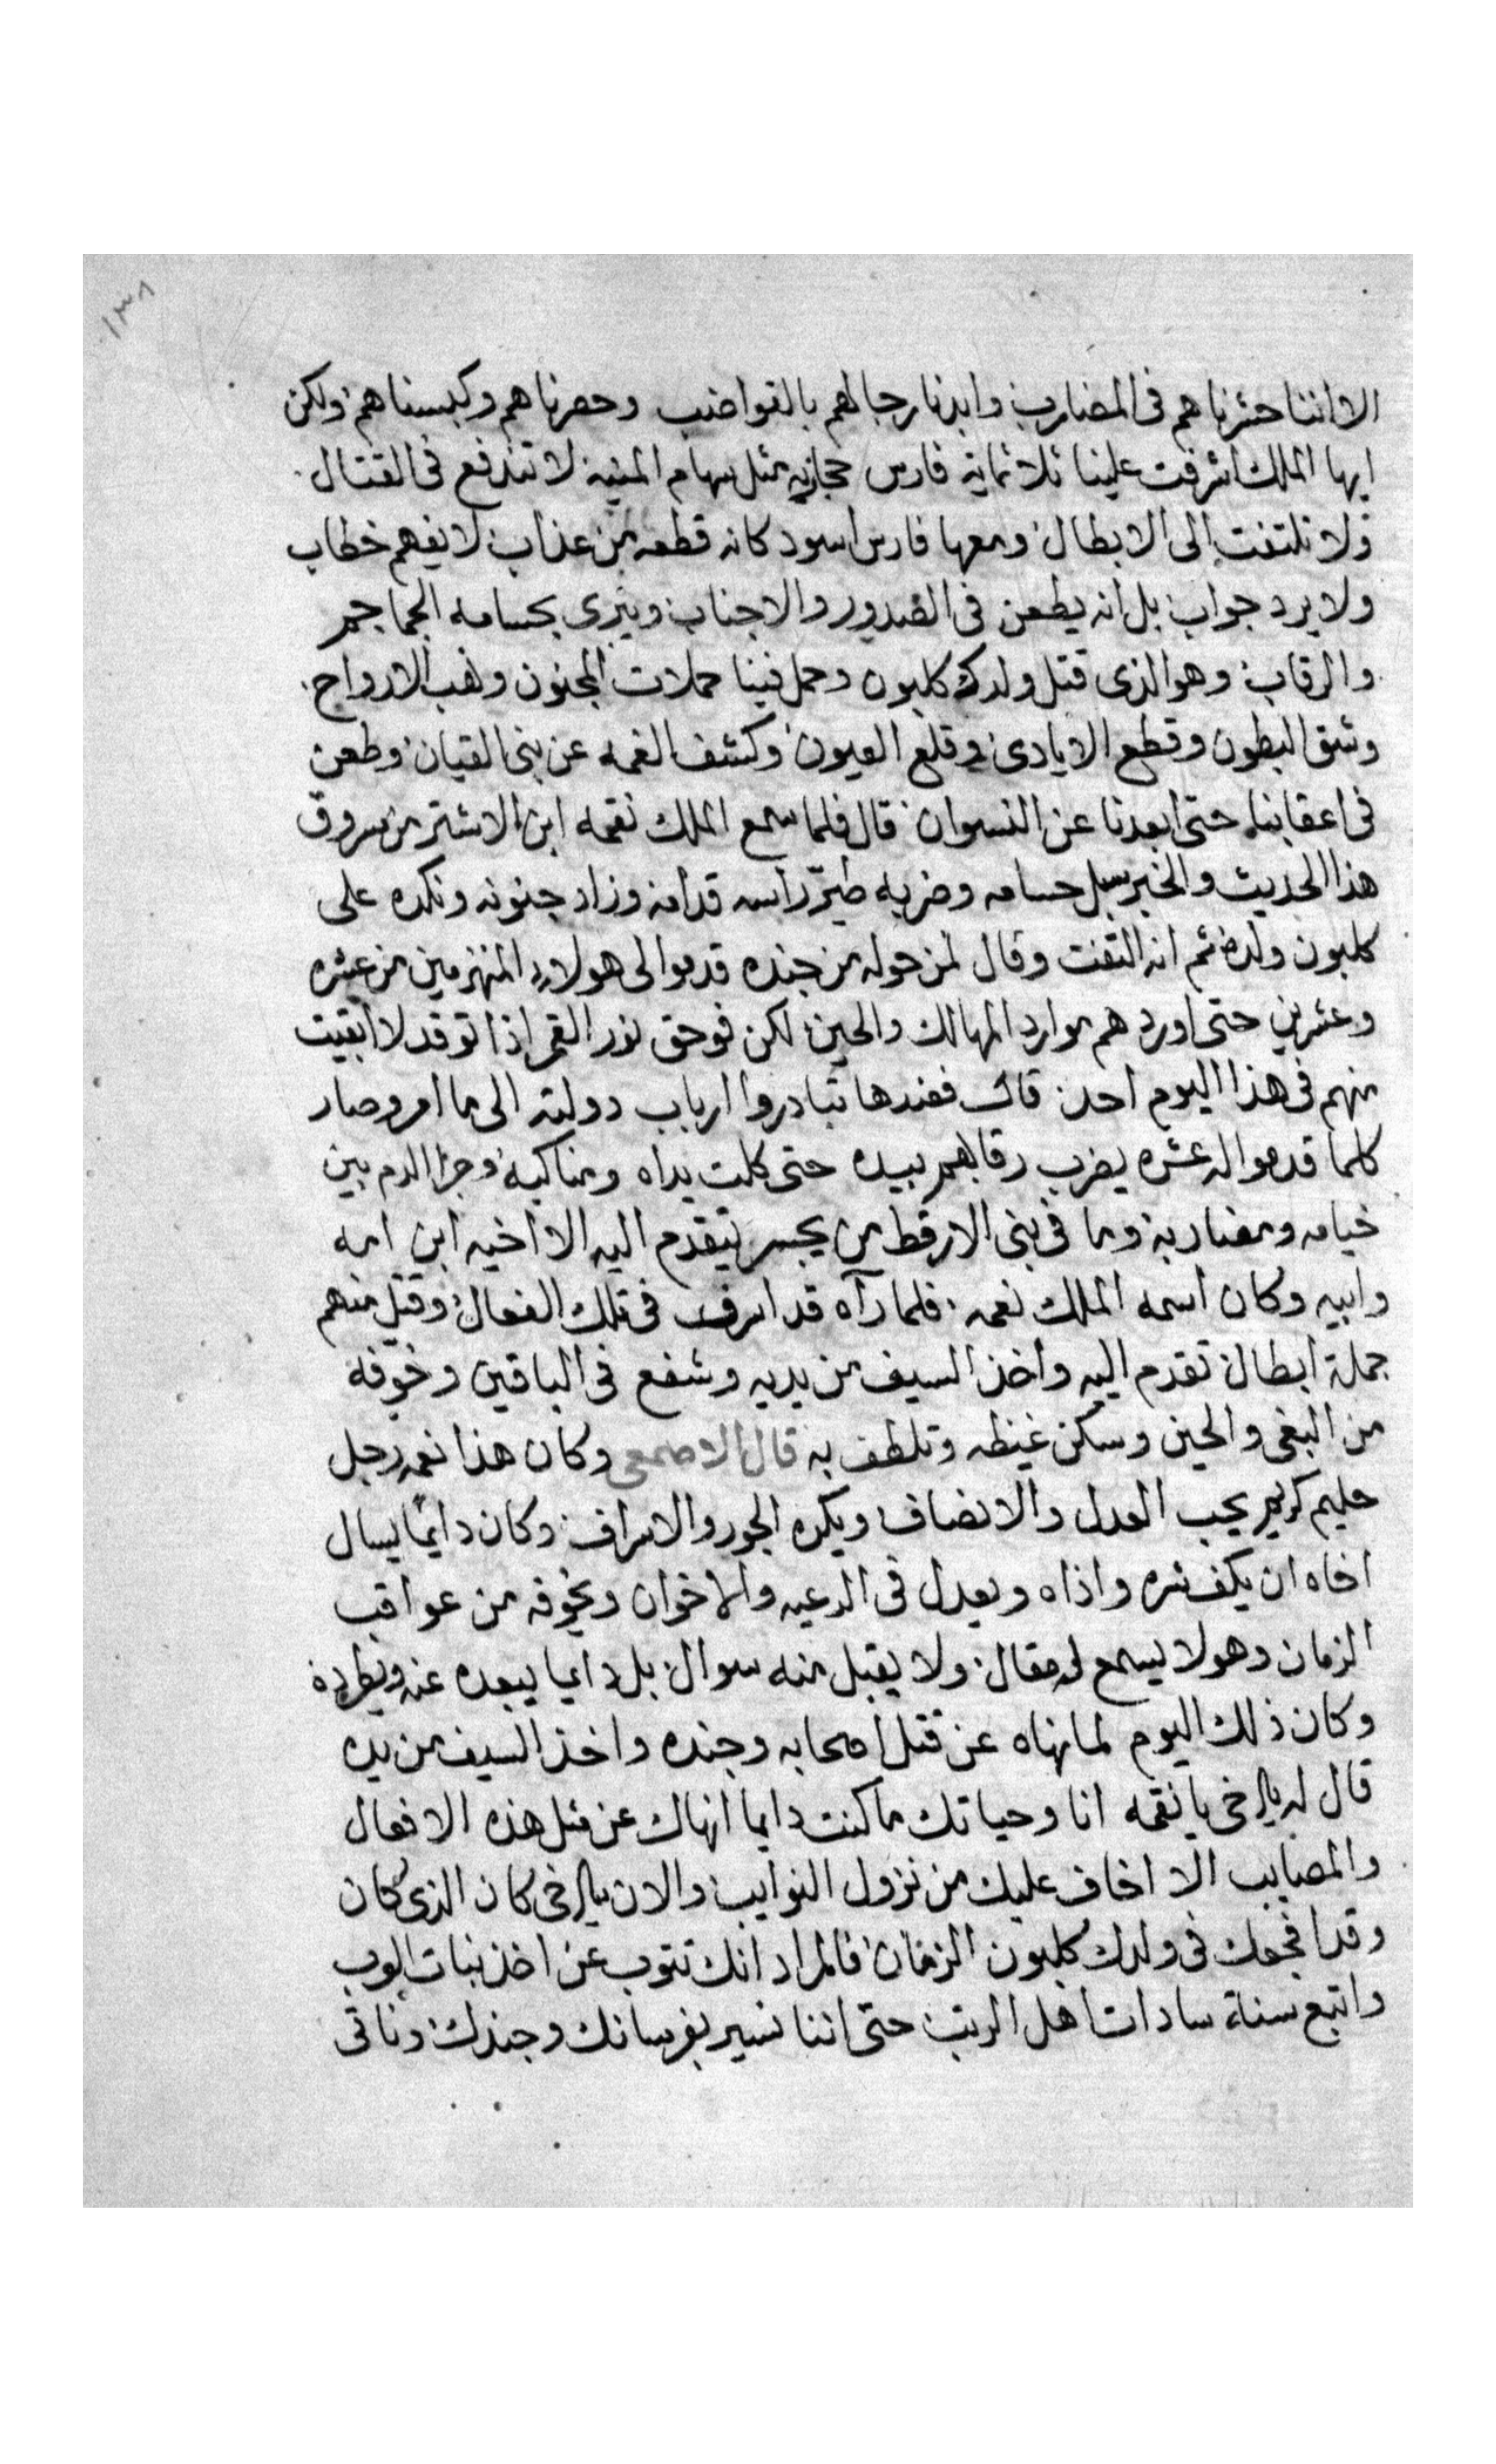 ١٣٨
الا اننا حشرناهم فى المضارب وابدنا رجالهم بالقواضب وحصرناهم وكبسناهم ولكن
ايها الملك اشرفت علينا ثلاثماية فارس حجازيه مثل سهام المنيه لا تندفع فى القتال
ولا تلتفت الى الابطال ومعها فارس اسود كانه قطعه من عذاب لا يفهم خطاب
ولا يرد جواب بل انه يطعن فى الصدور والاجناب ويبرى بحسامه الجماجم
والرقاب وهو الذى قتل ولدك كلبون وحمل فينا حملات المجنون ونهب الارواح
وشق البطون وقطع الايادى وقلع العيون وكشف الغمه عن بنى القيان وطعن
فى اعقابنا حتى ابعدنا عن النسوان قال فلما سمع الملك نقمه ابن الاشتر من مسروق
هذا الحديث والخبر سبل حسامه وضربه طير راسه قدامه وزاد جنونه ونكده على
كلبون ولده ثم انه التفت وقال لمن حوله من جنده قدموا لى هولاء المنهزمين من عشره
وعشرين حتى اوردهم موارد المهالك والحين لكن فوحق نور القمر اذا توقد لا ابقيت
منهم فى هذا اليوم احد قال فعندها تبادروا ارباب دولته الى ما امر وصار
كلما قدموا له عشره يضرب رقابهم بيده حتى كلت يداه ومناكبه وجرا الدم بين
خيامه ومضاربه وما فى بنى الارقط من يجسر يتقدم اليه الا اخيه ابن امه
وابيه وكان اسمه الملك نعمه فلما رآه قد اسرف فى تلك الفعال وقتل منهم
جملة ابطال تقدم اليه واخذ السيف من يديه وشفع فى الباقين وخوفه
من البغى والحين وسكن غيظه وتلطف به قال الاصمعى وكان هذا نعمه رجل
حليم كريم يحب العدل والانصاف ويكره الجور والاسراف وكان دايمًا يسال
اخاه ان يكف شره واذاه ويعدل فى الرعيه والاخوان ويخوفه من عواقب
الزمان وهو لا يسمع له مقال ولا يقبل منه سوال بل دايما يبعده عنه ويطرده
وكان ذلك اليوم لما نهاه عن قتل اصحابه وجنده واخذ السيف من يده
قال له يا اخى يا نقمه انا وحياتك ما كنت دايما انهاك عن مثل هذه الافعال
والمصايب الا اخاف عليك من نزول النوايب والان يا اخى كان الذى كان
وقد افجعك فى ولدك كلبون الزمان فالمراد انك تتوب عن اخذ بنات العرب
واتبع سنة سادات اهل الرتب حتى اننا نسير بفرسانك وجندك وناتى